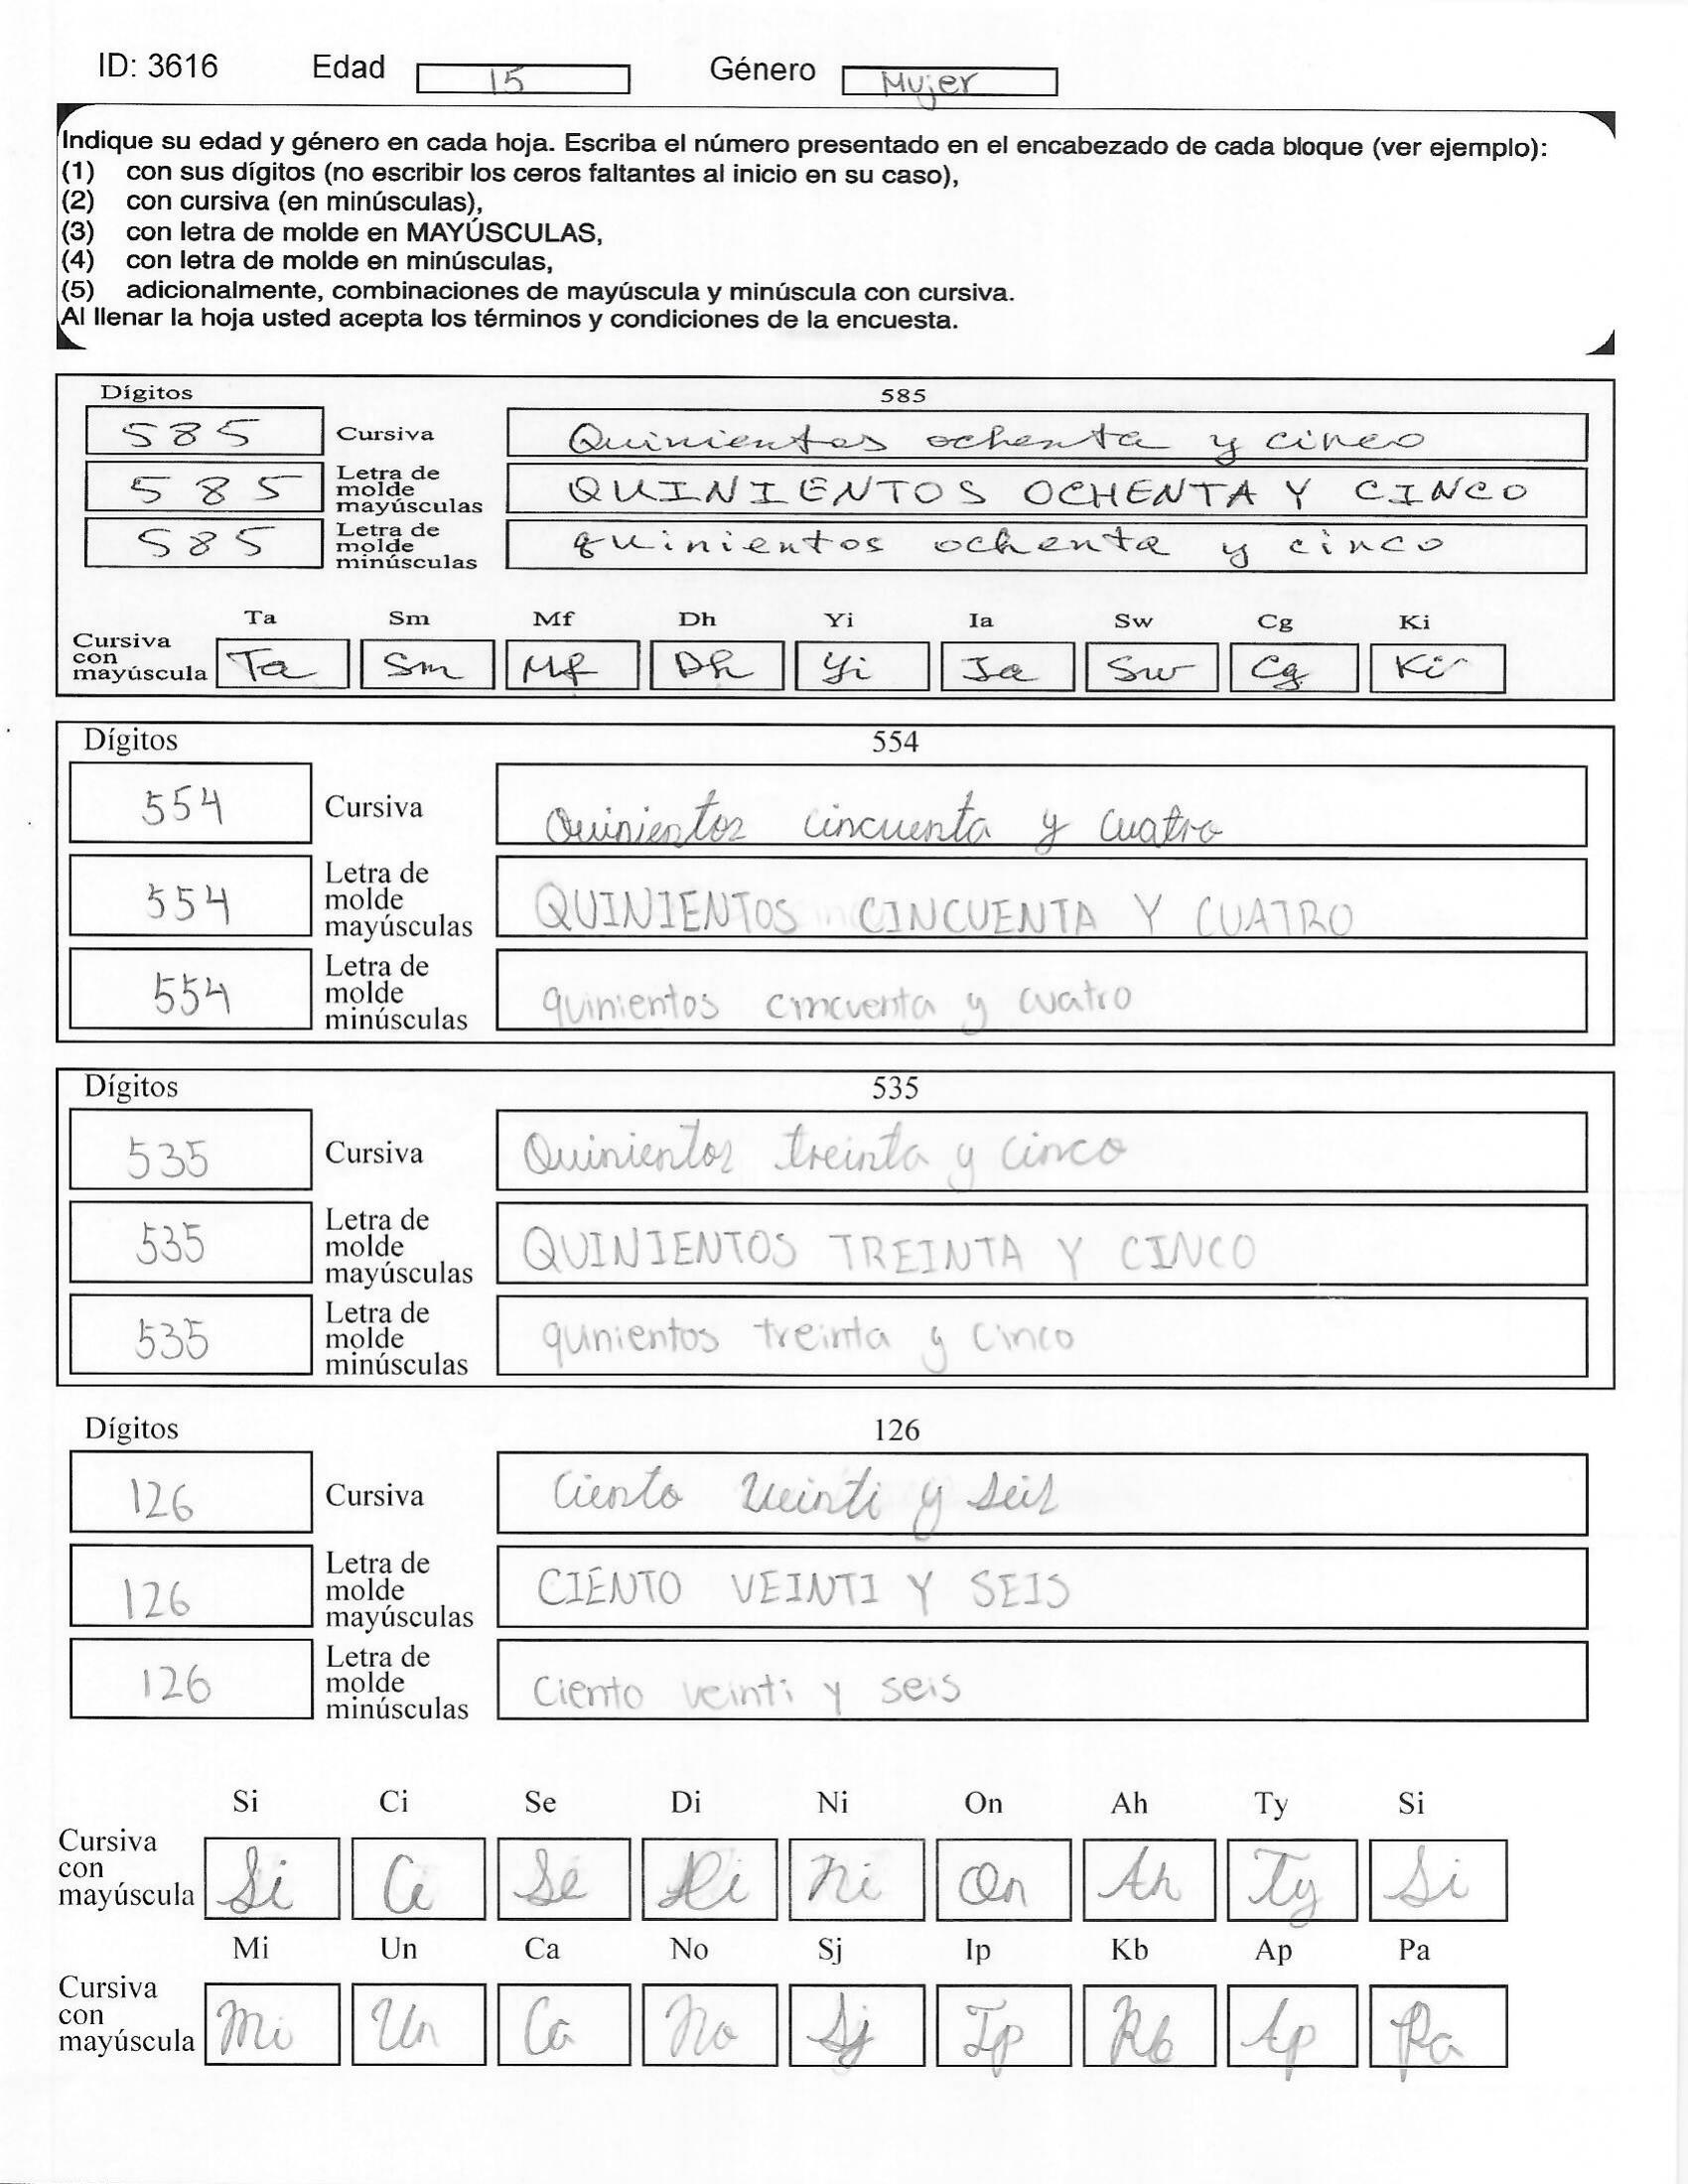 ID: 3616 Edad 15 Género Mujer
Indique su edad y género en cada hoja. Escriba el número presentado en el encabezado de cada bloque (ver ejemplo):
(1) con sus dígitos (no escribir los ceros faltantes al inicio en su caso),
(2) con cursiva (en minúsculas),
(3) con letra de molde en MAYÚSCULAS,
(4) con letra de molde en minúsculas,
(5) adicionalmente, combinaciones de mayúscula y minúscula con cursiva.
Al llenar la hoja usted acepta los términos y condiciones de la encuesta.
Dígitos 585
585 Cursiva Quinientos ochenta y cinco
585 Letra de molde mayúsculas QUINIENTOS OCHENTA Y CINCO
585 Letra de molde minúsculas quinientos ochenta y cinco
Ta Sm Mf Dh Yi Ia Sw Cg Ki
Cursiva con mayúscula Ta Sm Mf Dh Yi Ia Sw Cg Ki
Dígitos 554
554 Cursiva Quinientos cincuenta y cuatro
554 Letra de molde mayúsculas QUINIENTOS CINCUENTA Y CUATRO
554 Letra de molde minúsculas quinientos cincuenta y cuatro
Dígitos 535
535 Cursiva Quinientos treinta y cinco
535 Letra de molde mayúsculas QUINIENTOS TREINTA Y CINCO
535 Letra de molde minúsculas qunientos treinta y cinco
Dígitos 126
126 Cursiva Ciento veinti y seis
126 Letra de molde mayúsculas CIENTO VEINTI Y SEIS
126 Letra de molde minúsculas Ciento veinti y seis
Si Ci Se Di Ni On Ah Ty Si
Cursiva con mayúscula Si Ci Se Di Ni On Ah Ty Si
Mi Un Ca No Sj Ip Kb Ap Pa
Cursiva con mayúscula Mi Un Ca No Sj Ip Kb Ap Pa